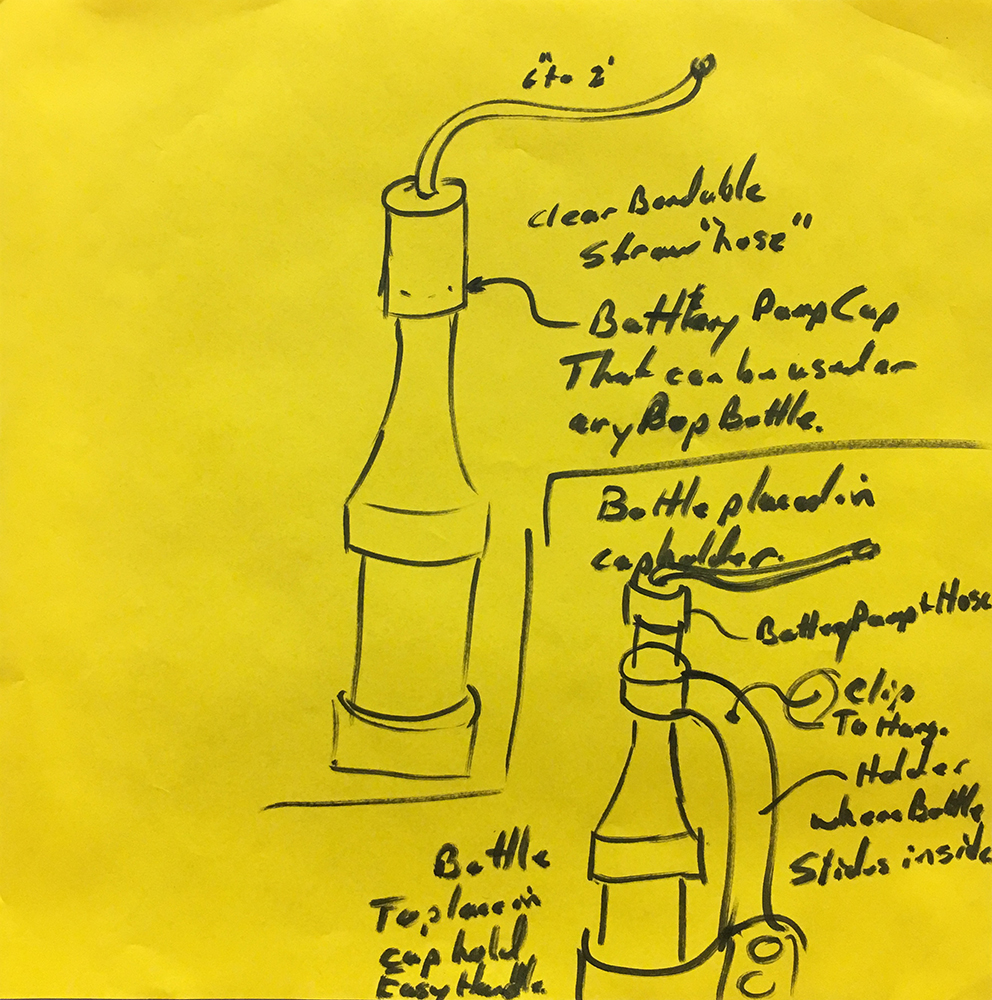 6" to 2'
clear Bendable
Straw "hose"
Battery Pump Cap
That can be used on
any Pop Bottle.
Bottle placed in
cap holder.
Battery Pump & Hose
Clip
To Hang.
Holder
where Bottle
Slides inside
Bottle
To place in
cap hold
Easy Handle